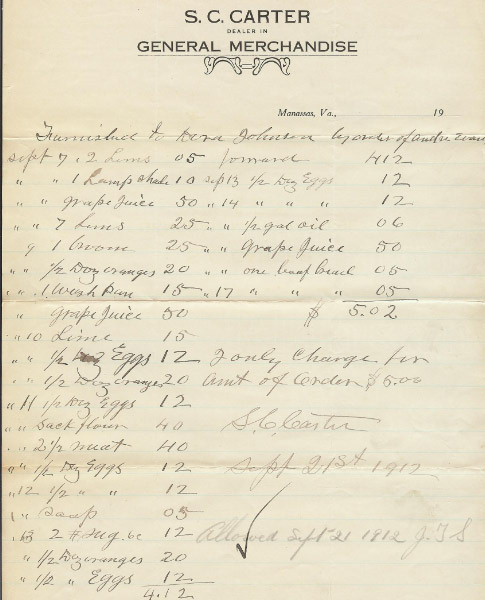 S. C. CARTER
DEALER IN
GENERAL MERCHANDISE
Manassas, Va., 19
Furnished to Dora Johnson by order of Andrew
Sept 7 , 2 Lims 05
" " 1 Lamp shade 10
" " grape Juice 50
" " 7 Lims 25
" 9 1 broom 25
" " 1/2 Doz oranges 20
" " 1 Wish Pan 15
" grape Juice 50
" 10 Lims 15
" " 1/2 Doz Eggs 12
" " 1/2 Doz oranges 20
" 11 1/2 Doz Eggs 12
" " Sack flour 40
" " 2 1/2 meat 40
" " 1/2 Doz Eggs 12
" 12 1/2 " " 12
" " Soap 05
" 13 2 # Sug. 12
" 1/2 Doz oranges 20
" 1/2 " Eggs 12
4.12
forward 412
Sep 13 1/2 Doz Eggs 12
" 14 " " " 12
" " 1/2 gal oil 06
" " Grape Juice 50
" " one loaf bread 05
" 17 " " " 05
$ 5.02
I only Charge for
Amt of Order $5.00
S. C. Carter
Sept 21st 1912
Allowed Sept 21 1912 J. T. S